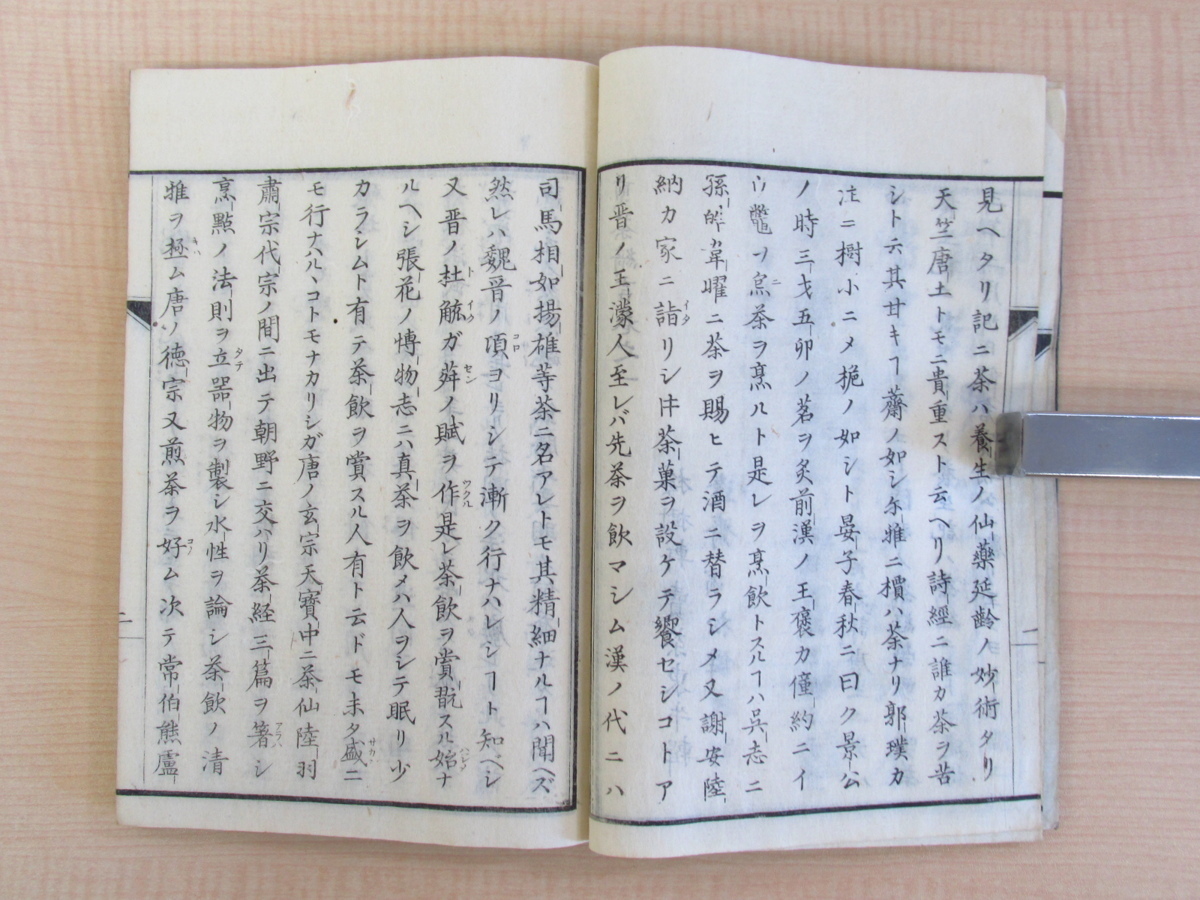 見ヘタリ記ニ茶ハ養生ノ仙藥延齡ノ妙術タリ
天竺唐土トモニ貴重スト云ヘリ詩經ニ誰カ茶ヲ苦
シト云其甘キヿ薺ノ如シ尓雅ニ檟ハ茶ナリ郭璞カ
注ニ樹小ニメ梔ノ如シト晏子春秋ニ曰ク景公
ノ時三戈五卯ノ茗ヲ炙前漢ノ王褒カ僮約ニイ
ウ鼈ヲ炰茶ヲ烹ルト是レヲ烹飲トスルヿハ呉志ニ
孫皓カ韋曜ニ茶ヲ賜ヒテ酒ニ替ラシメ又謝安陸
納カ家ニ詣リシ時茶菓ヲ設ケテ饗セシコトア
リ晋ノ王濛人至レバ先茶ヲ飲マシム漢ノ代ニハ
司馬相如揚雄等茶ニ名アレトモ其精細ナルヿハ聞ヘズ
然レハ魏晋ノ項ヨリシテ漸ク行ナハレシヿト知ベシ
又晋ノ杜毓ガ荈ノ賦ヲ作是レ茶飲ヲ賞翫スル始ナ
ルヘシ張花ノ博物志ニハ真茶ヲ飲メハ人ヲシテ眠リ少
カラシムト有テ茶飲ヲ賞スル人有ト云ドモ未タ盛ニ
モ行ナハルヽコトモナカリシガ唐ノ玄宗天寶中ニ茶仙陸羽
肅宗代宗ノ間ニ出テ朝野ニ交ハリ茶経三篇ヲ著シ
烹點ノ法則ヲ立器物ヲ製シ水性ヲ論シ茶飲ノ清
雅ヲ極ム唐ノ徳宗又煎茶ヲ好ム次テ常伯熊盧
二